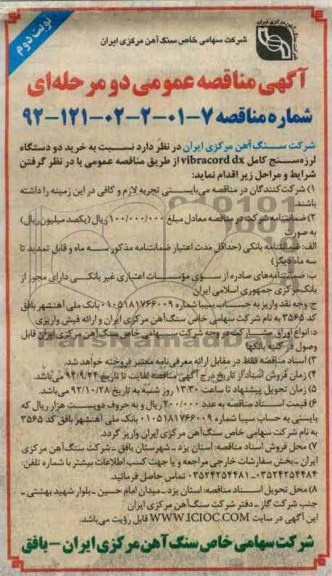 شرکت سهامی خاص سنگ آهن مرکزی ایران
نوبت دوم
آگهی مناقصه عمومی دو مرحله‌ای
شماره مناقصه ۷-۰۱-۲-۰۲-۱۲۱-۹۲
شرکت سنگ آهن مرکزی ایران در نظر دارد نسبت به خرید دو دستگاه
لرزه سنج کامل vibracord dx از طریق مناقصه عمومی با در نظر گرفتن
شرایط و مراحل زیر اقدام نماید:
۱) شرکت کنندگان در مناقصه می‌بایستی تجربه لازم و کافی در این زمینه را داشته
باشند.
۲) ضمانتنامه شرکت در مناقصه معادل مبلغ ۱۰۰/۰۰۰/۰۰۰ ریال (یکصد میلیون ریال)
به صورت
الف: ضمانتنامه بانکی (حداقل مدت اعتبار ضمانتنامه مذکور سه ماه و قابل تمدید تا
سه ماه دیگر)
ب: ضمانتنامه‌های صادره از سوی مؤسسات اعتباری غیر بانکی دارای مجوز از
بانک مرکزی جمهوری اسلامی ایران
ج: وجه نقد واریز به حساب سیبا شماره ۰۱۰۵۱۸۱۷۶۶۰۰۹ بانک ملی آهنشهر بافق
کد ۳۵۶۵ به نام شرکت سهامی خاص سنگ آهن مرکزی ایران و ارائه فیش واریزی
د: انواع اوراق مشارکت در وجه شرکت سهامی خاص سنگ آهن مرکزی ایران قابل
وصول در کلیه بانکها
۳) اسناد مناقصه فقط در مقابل ارائه معرفی‌نامه معتبر فروخته خواهد شد.
۴) زمان فروش اسناد از تاریخ درج آگهی مناقصه لغایت تا تاریخ ۹۲/۹/۲۴ می‌باشد.
۵) زمان تحویل پیشنهاد تا ساعت ۱۳:۳۰ روز شنبه به تاریخ ۹۲/۱۰/۲۸ می‌باشد.
۶) قیمت اسناد مناقصه به عدد ۲۰۰/۰۰۰ ریال و به حروف دویست هزار ریال که
بایستی به حساب سیبا شماره ۰۱۰۵۱۸۱۷۶۶۰۰۹ بانک ملی آهنشهر بافق کد ۳۵۶۵
به نام شرکت سهامی خاص سنگ آهن مرکزی ایران واریز گردد.
۷) محل فروش اسناد مناقصه: استان یزد - شهرستان بافق - شرکت سنگ آهن مرکزی
ایران - بخش سفارشات خارجی مراجعه و یا جهت کسب اطلاعات بیشتر با شماره تلفن:
۰۳۵۲۴۲۵۴۴۸۴ - ۰۳۵۲۴۲۵۴۴۸۱ تماس حاصل فرمائید.
۸) محل تحویل اسناد مناقصه: استان یزد - میدان امام حسین - بلوار شهید بهشتی -
جنب شرکت گاز - دفتر شرکت سنگ آهن مرکزی ایران
این آگهی در سایت WWW.ICIOC.COM قابل رؤیت می‌باشد.
شرکت سهامی خاص سنگ آهن مرکزی ایران - بافق